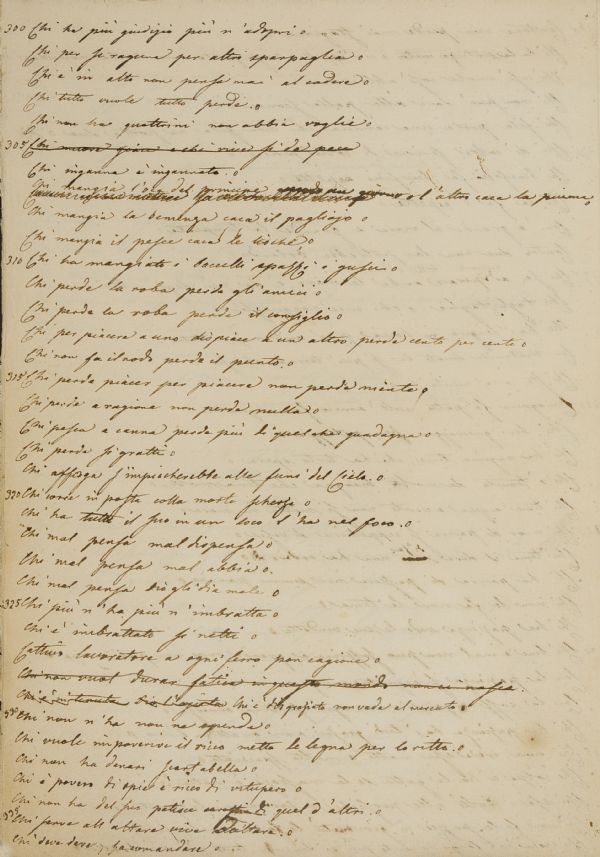 300 Chi ha più giudizio più n'adopri.
Chi per se raguna per altri sparpaglia.
Chi è in alto non pensa mai al cadere.
Chi tutto vuole tutto perde.
Chi non ha quattrini non abbia voglie.
305 Chi muore giace e chi vive si dà pace
Chi inganna è ingannato.
Chi mangia l'oca del principe l'altro caca la piuma.
Chi mangia la semenza caca il pagliajo.
Chi mangia il pesce caca le lische.
310 Chi ha mangiato i baccelli spazzi i gusci.
Chi perde la roba perde gli amici.
Chi perde la roba perde il consiglio.
Chi per piacere a uno dispiace a un altro perde cento per cento.
Chi non fa il nodo perde il punto.
315 Chi perde piacer per piacere non perde niente.
Chi perde a ragione non perde nulla.
Chi pesca a canna perde più di quel che guadagna.
Chi perde si gratti.
Chi affoga s'impiccherebbe alle funi del Cielo.
320 Chi corre in posta colla morte scherza.
Chi ha tutto il suo in un loco l'ha nel foco.
Chi mal pensa mal dispensa.
Chi mal pensa mal abbia.
Chi mal pensa Dio gli dia male.
325 Chi più n'ha più n'imbratta.
Chi è imbrattato si netti.
Cattivo lavoratore a ogni ferro pon cagione.
Chi non vuol durar fatica in questo mondo non ci nasca.
Chi è disgraziato non vada al mercato.
330 Chi non n'ha non ne spenda.
Chi vuole impoverire il ricco metta le legna per lo ritto.
Chi non ha denari scartabella.
Chi è povero di spie è ricco di vituperio
Chi non ha del suo patisce carestia di quel d'altri.
335 Chi serve all'altare vive d'altare.
Chi deve dare fa comandare.